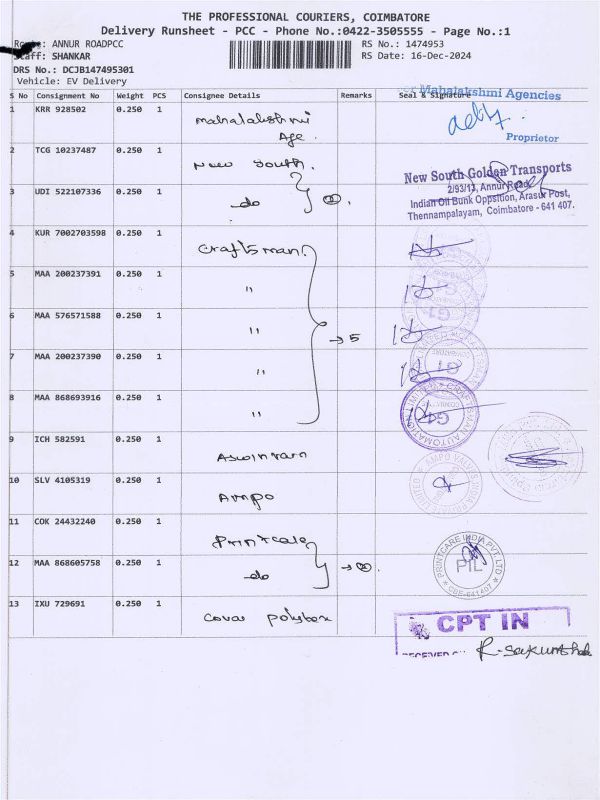 THE PROFESSIONAL COURIERS, COIMBATORE
Delivery Runsheet - PCC - Phone No.:0422-3505555 - Page No.:1
Route: ANNUR ROADPCC RS No.: 1474953
Staff: SHANKAR RS Date: 16-Dec-2024
DRS No.: DCJB147495301
Vehicle: EV Delivery
S No Consignment No Weight PCS Consignee Details Remarks Seal & Signature
Mahalakshmi Agencies
1 KRR 928502 0.250 1 Mahalakshmi
Age.
Proprietor
2 TCG 10237487 0.250 1 New South.
New South Golden Transports
2/93/13, Annur Road,
Indian Oil Bunk Oppsition, Arasur Post,
Thennampalayam, Coimbatore - 641 407.
3 UDI 522107336 0.250 1 -do 2.
4 KUR 7002703598 0.250 1 Craftsman.
5 MAA 200237391 0.250 1 "
6 MAA 576571588 0.250 1 " → 5
7 MAA 200237390 0.250 1 "
G1
8 MAA 868693916 0.250 1 "
CRAFTSMAN AUTOMATION LIMITED
G4
9 ICH 582591 0.250 1 Aswinram
10 SLV 4105319 0.250 1 Ampo
AMPO VALVES INDIA PRIVATE LIMITED
11 COK 24432240 0.250 1 Printcale
12 MAA 868605758 0.250 1 -do → 2.
PRINTCARE INDIA PVT. LTD
PIL
* CBE-641407 *
13 IXU 729691 0.250 1 Covai polytex
CPT IN
RECEIVED